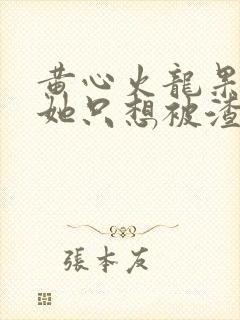 黄心火龍果
她只想被渣
張本友